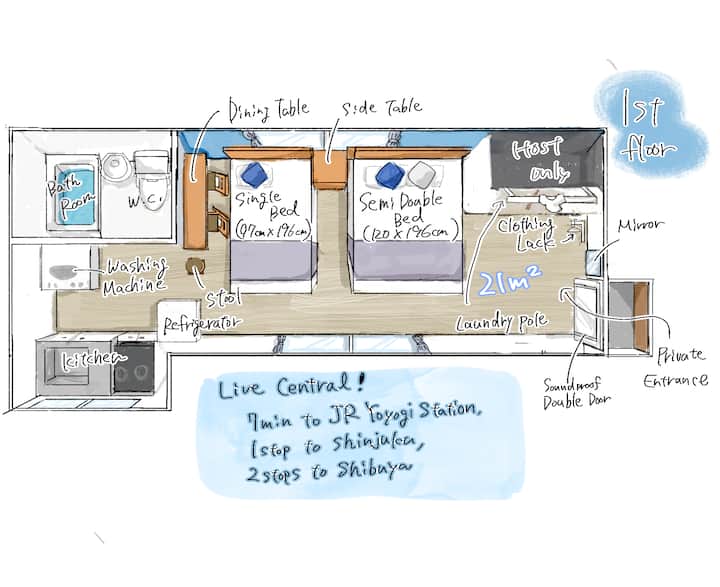 1st
floor
Dining Table
Side Table
Bath
Room
W.C.
Single
Bed
(97cm×196cm)
Semi Double
Bed
(120×196cm)
Host
only
Clothing
Lack
Mirror
Washing
Machine
Stool
Refrigerator
21m²
Laundry pole
Kitchen
Private
Entrance
Soundproof
Double Door
Live Central!
7min to JR Yoyogi Station,
1stop to Shinjuku,
2stops to Shibuya